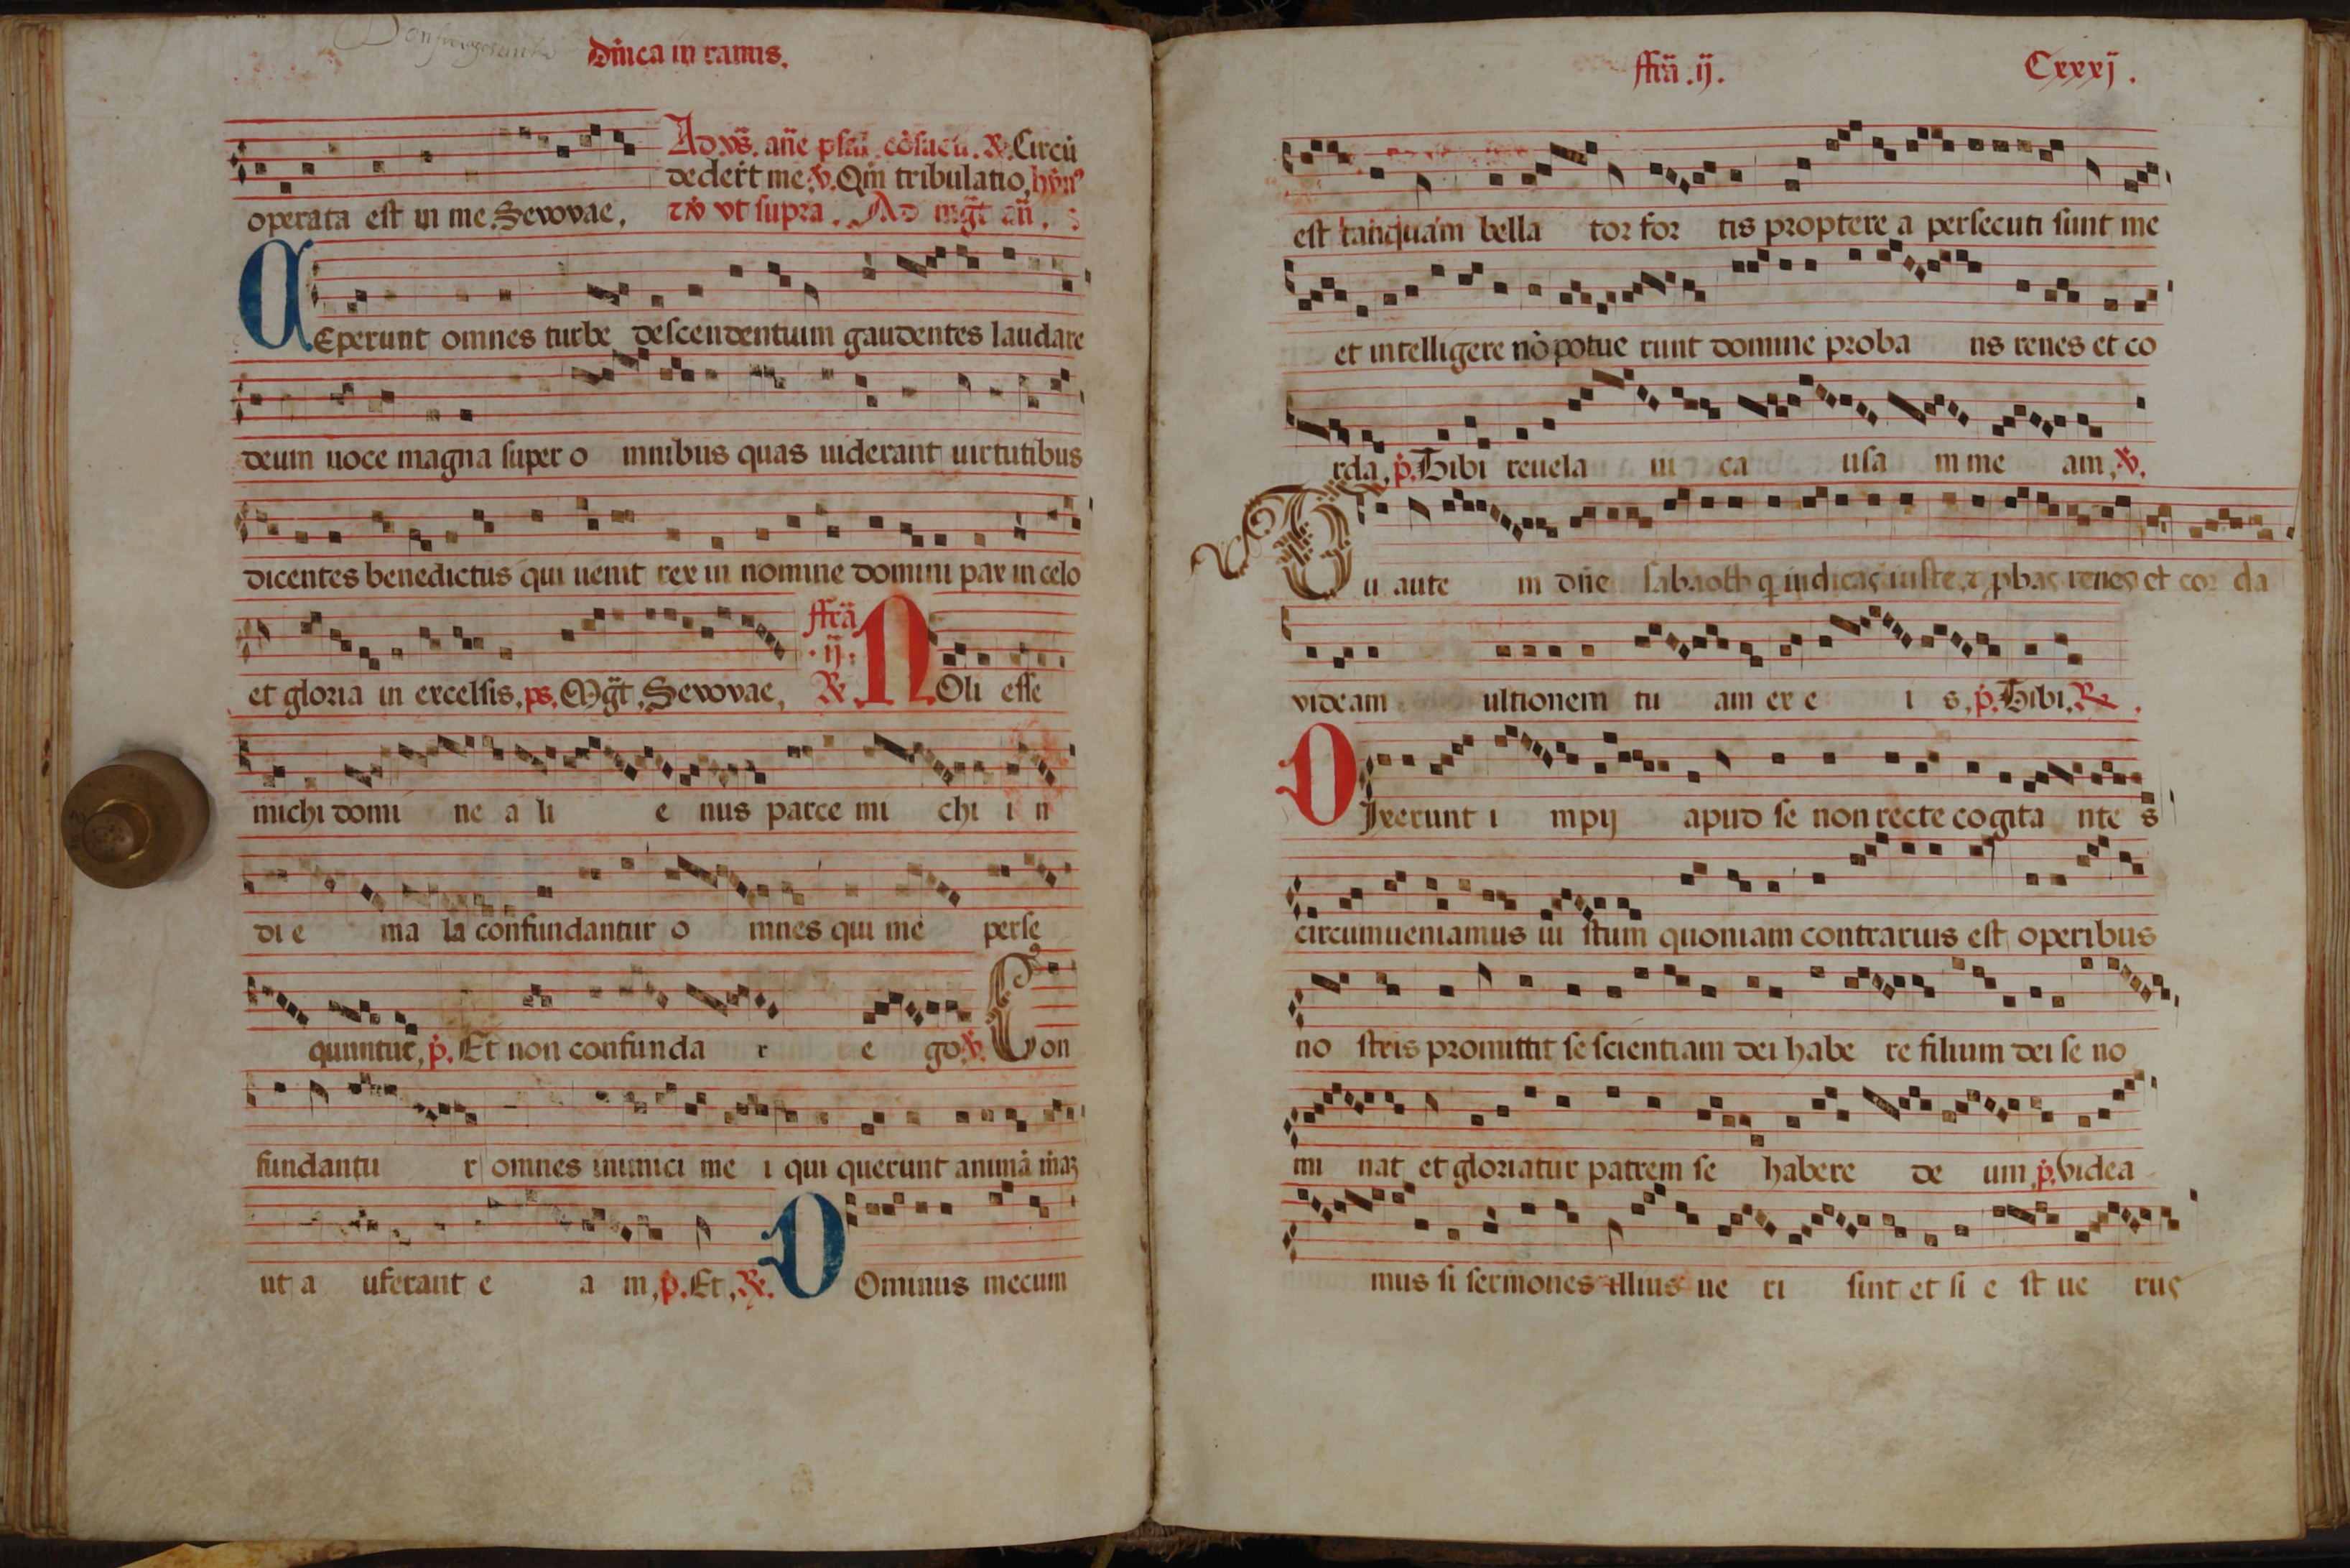 Dñica in ramis.
Ad vs̃. añe psal̃. cõsuetu. R. Circũ
dedert̃ me. v. Qm̃ tribulatio, hỹn9
operata est in me. Sevovae.
⁊ v ut supra. Ad mgt̃ añ.
CEperunt omnes turbe descendentium gaudentes laudare
deum uoce magna super o mnibus quas uiderant uirtutibus
dicentes benedictus qui uenit rex in nomine domini pax in celo
et gloria in excelsis. ps. Mgt̃. Sevovae.
ffrã
.ij.
R NOli esse
michi domi ne a li e nus parce mi chi i n
di e ma la confundantur o mnes qui me perse
quuntur. p. Et non confunda r e go. v. Con
fundantu r omnes inimici me i qui querunt animã mãꝫ
ut a uferant e a m. p. Et. R. DOminus mecum
ffrã .ij. Cxxxj.
est tanquam bella tor for tis proptere a persecuti sunt me
et intelligere nõ potue runt domine proba ns renes et co
rda. p. Tibi reuela ui ca usa m me am. v.
Tu aute m dñe sabaoth q iudicas iuste ⁊ pbas renes et cor da
videam ultionem tu am ex e i s. p. Tibi. R.
DIxerunt i mpij apud se non recte cogita nte s
circumueniamus iu stum quoniam contrarius est operibus
no stris promittit se scientiam dei habe re filium dei se no
mi nat et gloriatur patrem se habere de um. p. videa
mus si sermones illius ue ri sint et si e st ue rus